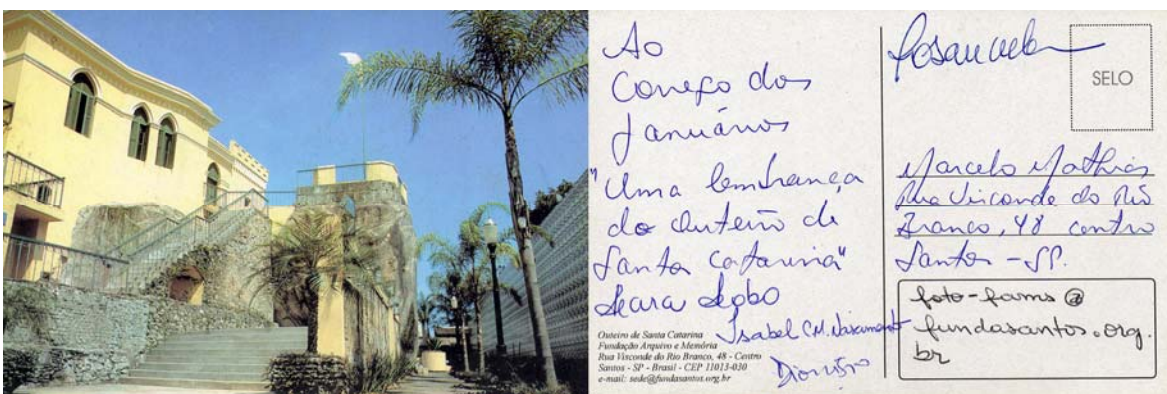 Ao
Começo dos
Januários
"Uma lembrança
do Outeiro de
Santa Catarina"
Isabel C.M. Nascimento
Dionísio
Outeiro de Santa Catarina
Fundação Arquivo e Memória
Rua Visconde do Rio Branco, 48 - Centro
Santos - SP - Brasil - CEP 11013-030
e-mail: sede@fundasantos.org.br
SELO
Marcelo Mathias
Rua Visconde do Rio
Branco, 48 centro
Santos - SP.
foto-fams@
fundasantos.org.
br